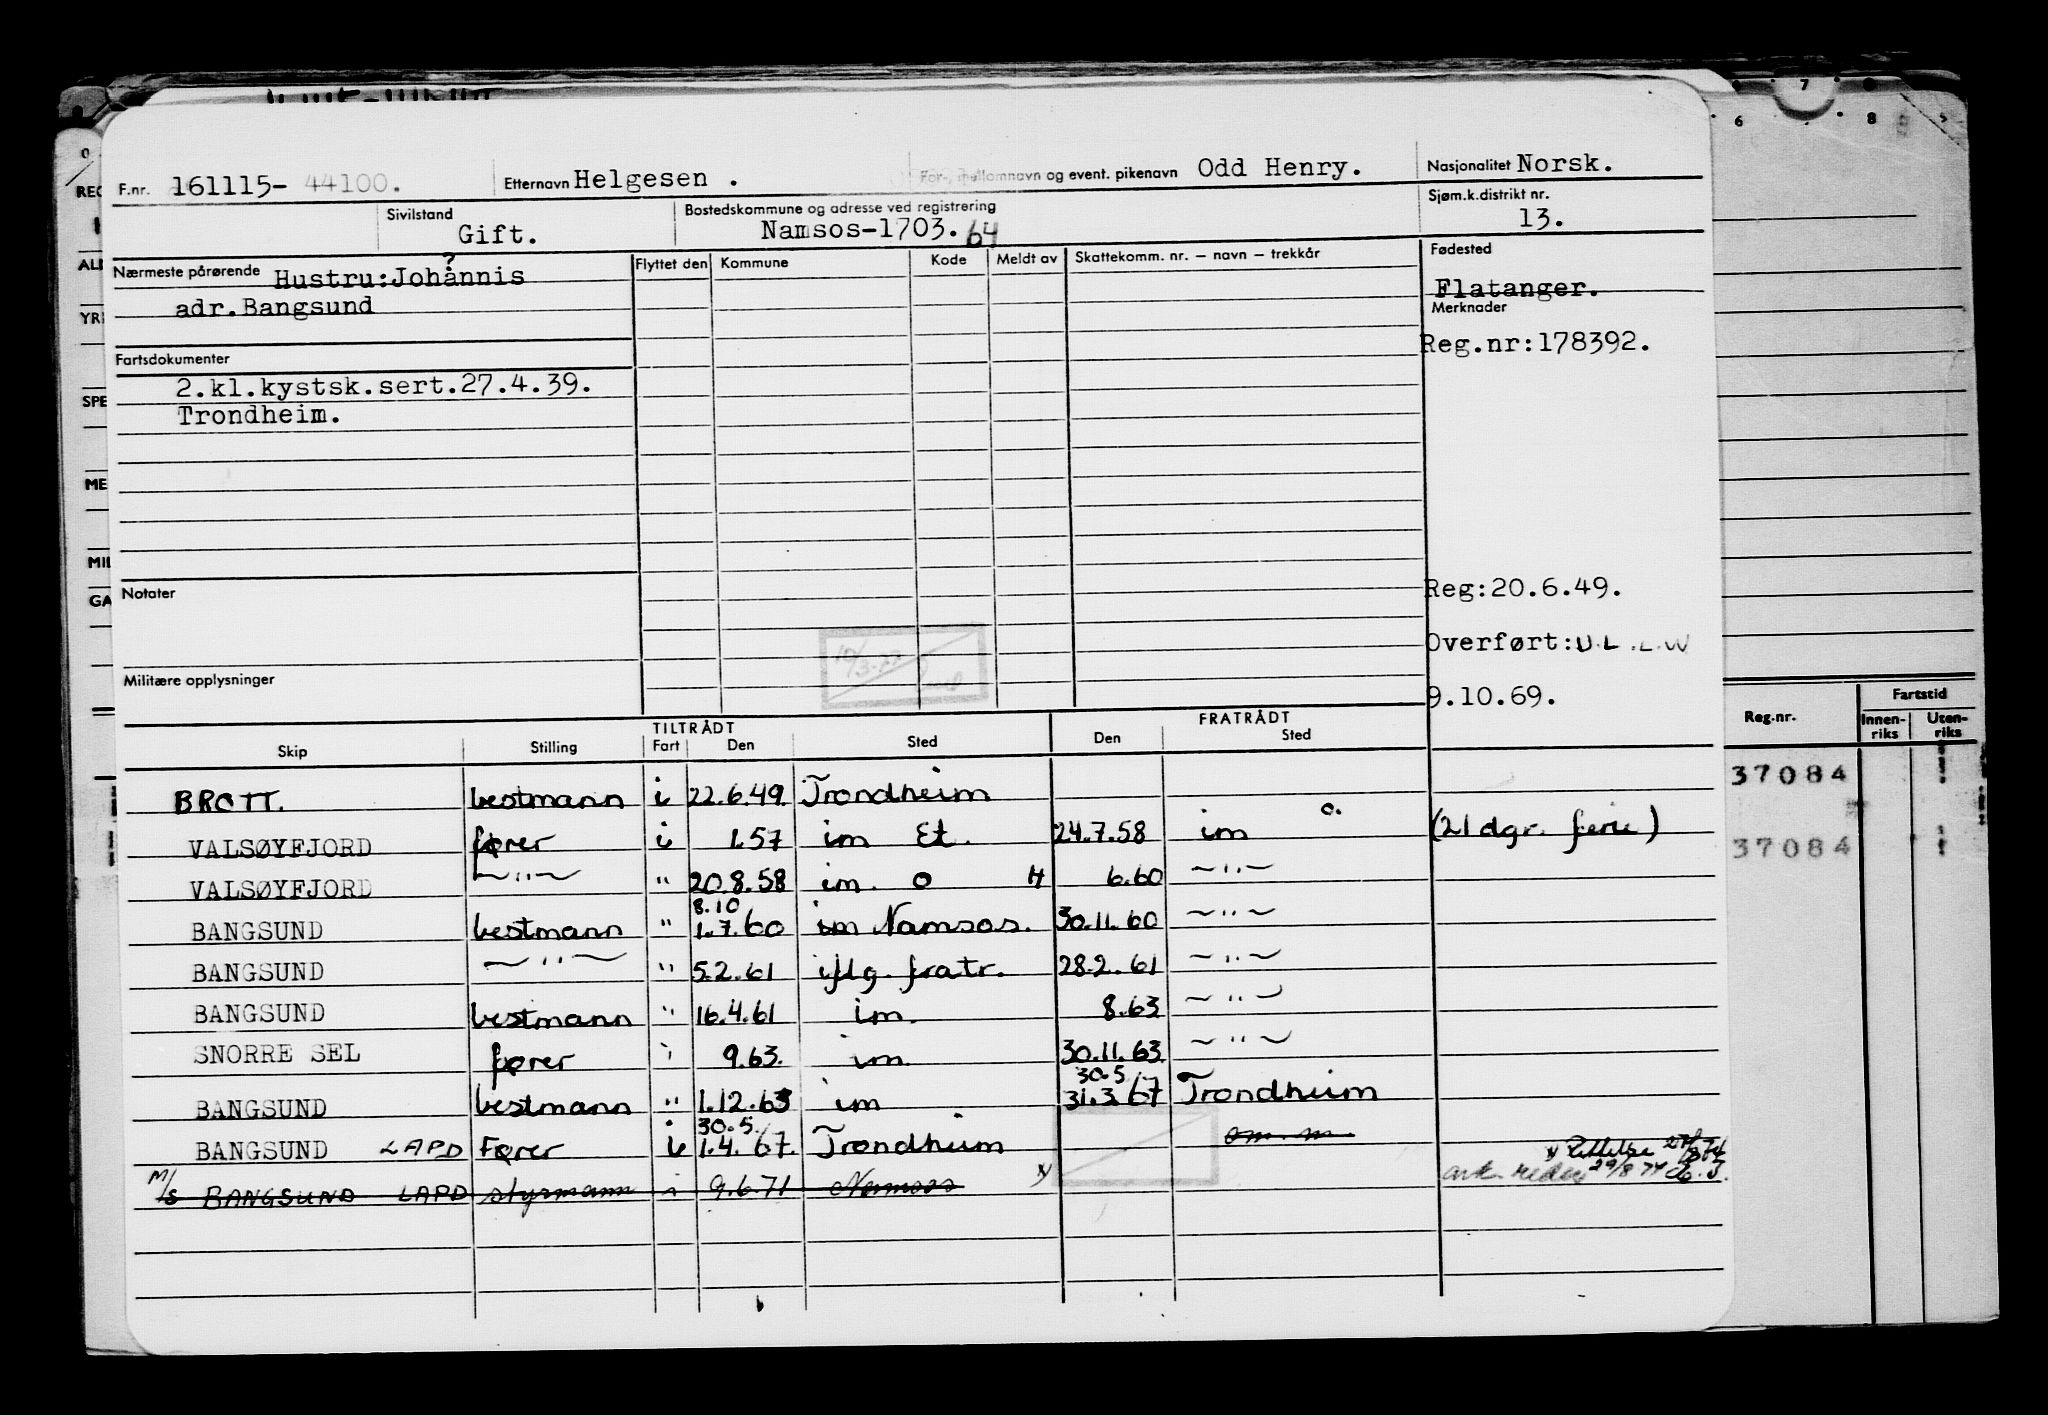 F.nr. 161115- 44100. Etternavn Helgesen . For-, mellomnavn og event. pikenavn Odd Henry. Nasjonalitet Norsk.
Sivilstand Gift. Bostedskommune og adresse ved registrering Namsos-1703. 64 Sjøm.k.distrikt nr. 13.
Nærmeste pårørende Hustru:Johánnis ? Flyttet den Kommune Kode Meldt av Skattekomm. nr. – navn – trekkår Fødested
adr.Bangsund Flatanger.
Merknader
Reg.nr:178392.
Fartsdokumenter
2.kl.kystsk.sert.27.4.39.
Trondheim.
Notater
Reg:20.6.49.
Overført:
Militære opplysninger
9.10.69.
TILTRÅDT FRATRÅDT
Skip Stilling Fart Den Sted Den Sted
Reg.nr. Fartstid
Innen-riks Uten-riks
BROTT. bestmann i 22.6.49 Trondheim 37084
VALSØYFJORD fører i 1.57 im Et. 24.7.58 im o. (21 dgr. ferie) 37084
VALSØYFJORD —"— " 20.8.58 im. O H 6.60 —"—
8.10
BANGSUND bestmann " 1.7.60 im Namsos. 30.11.60 —"—
BANGSUND —"— " 5.2.61 iflg. fratr. 28.2.61 —"—
BANGSUND bestmann " 16.4.61 im. 8.63 —"—
SNORRE SEL fører i 9.63. im. 30.11.63 —"—
30.5
BANGSUND bestmann " 1.12.63 im 31.3.67 Trondheim
30.5.
BANGSUND LAPD Fører i 1.4.67. Trondheim om.m.
M/S BANGSUND LAPD styrmann i 9.6.71 Namsos x) x) Rettelse
29/8 74